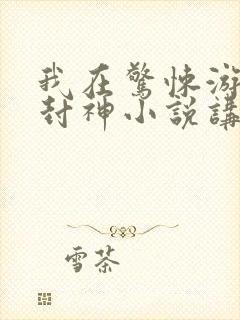 我在驚悚游
封神小說講
雪茶